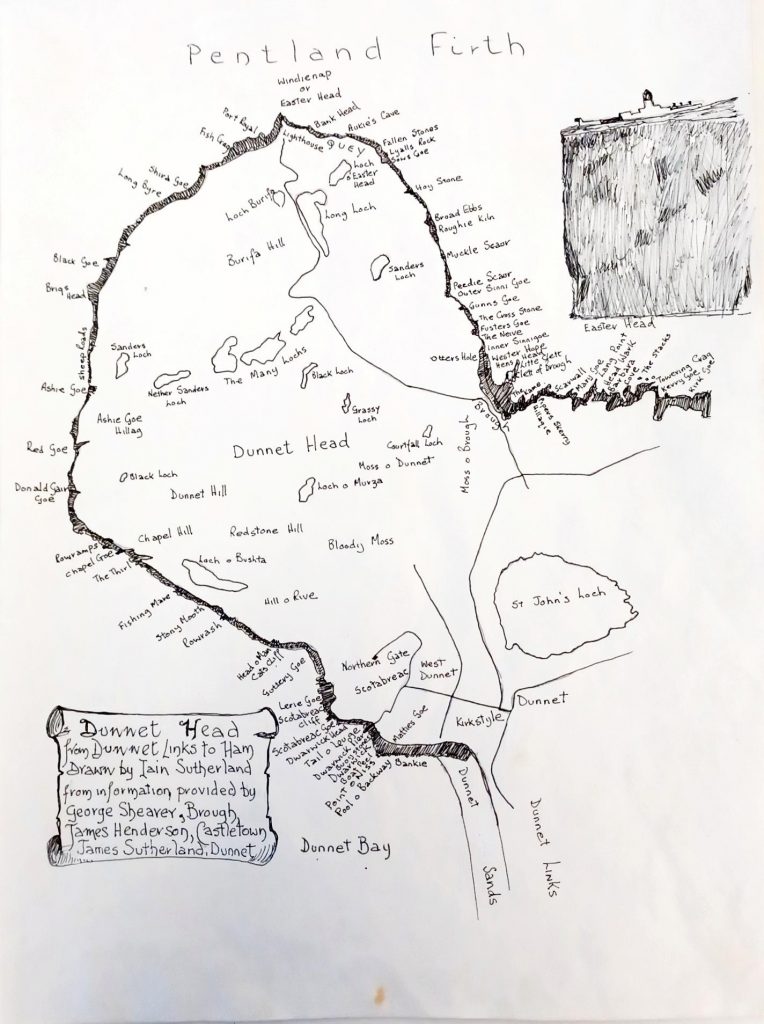 Pentland Firth
Windienap
or
Easter Head
Port Royal
Fish Craig
Shira Goe
Long Byre
Black Goe
Brigs
Head
Sheep Loads
Ashie Goe
Red Goe
Donald Gair
Goe
Rowramps
Chapel Goe
The Thirl
Fishing Mare
Stony Mooth
Rowrash
Head o Man
Cats Cliff
Gutsery Goe
Lerie Goe
Scotabreac
Cliff
Scotabreac Goe
Dwarwick Head
Tail o Leune
Dwarwick Pier
Point o Ness
Pool o Backaway
Bankie
Bank Head
Aukie's Cave
Lighthouse QUEY
Fallen Stones
Lyalls Rock
Sows Goe
Hoy Stone
Broad Ebbs
Roughie Kiln
Muckle Scaor
Peedie Scaor
Outer Sinni Goe
Gunns Goe
The Cross Stone
Fusters Goe
The Neive
Inner Sinnigoe
Otters Hole
Wester Hope
Hens Head
Little Clett
Clett of Brough
Scarwall
Mary Goe
Long Point
The Stacks
Towering Craig
Kerry Goe
Kirk Goe
Easter Head
Loch
o Easter
Head
Loch Burifa
Long Loch
Burifa Hill
Sanders
Loch
Sanders
Loch
Nether Sanders
Loch
The Many Lochs
Black Loch
Grassy
Loch
Ashie Goe
Hillag
Dunnet Head
Courtfall Loch
Moss o Dunnet
Moss o Brough
Brough
Black Loch
Dunnet Hill
Loch o Murza
Chapel Hill
Redstone Hill
Bloody Moss
Loch o Bushta
Hill o Rive
St John's Loch
Northern Gate
Scotabreac
West
Dunnet
Dunnet
Kirkstyle
Matties Goe
Dunnet Sands
Dunnet Links
Dunnet Bay
Dunnet Head
from Dunnet Links to Ham
Drawn by Iain Sutherland
from information provided by
George Shearer, Brough,
James Henderson, Castletown
James Sutherland, Dunnet